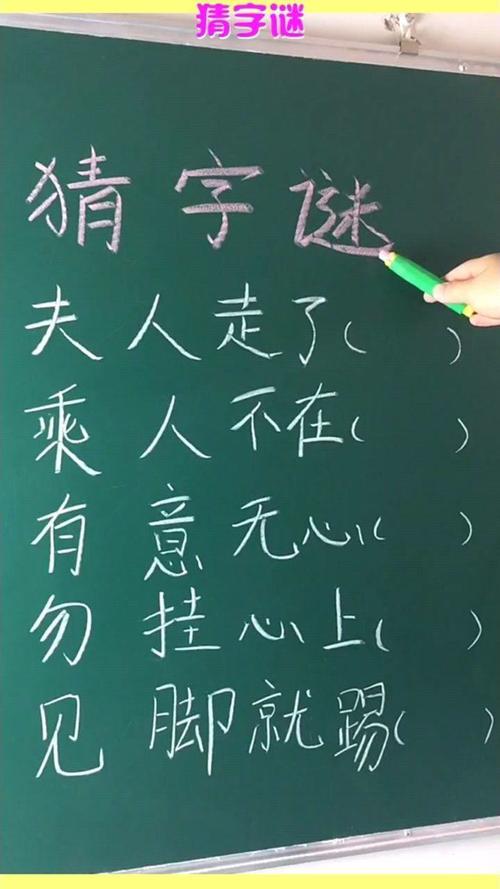 猜字谜
猜字谜
夫人走了( )
乘人不在( )
有意无心( )
勿挂心上( )
见脚就踢( )